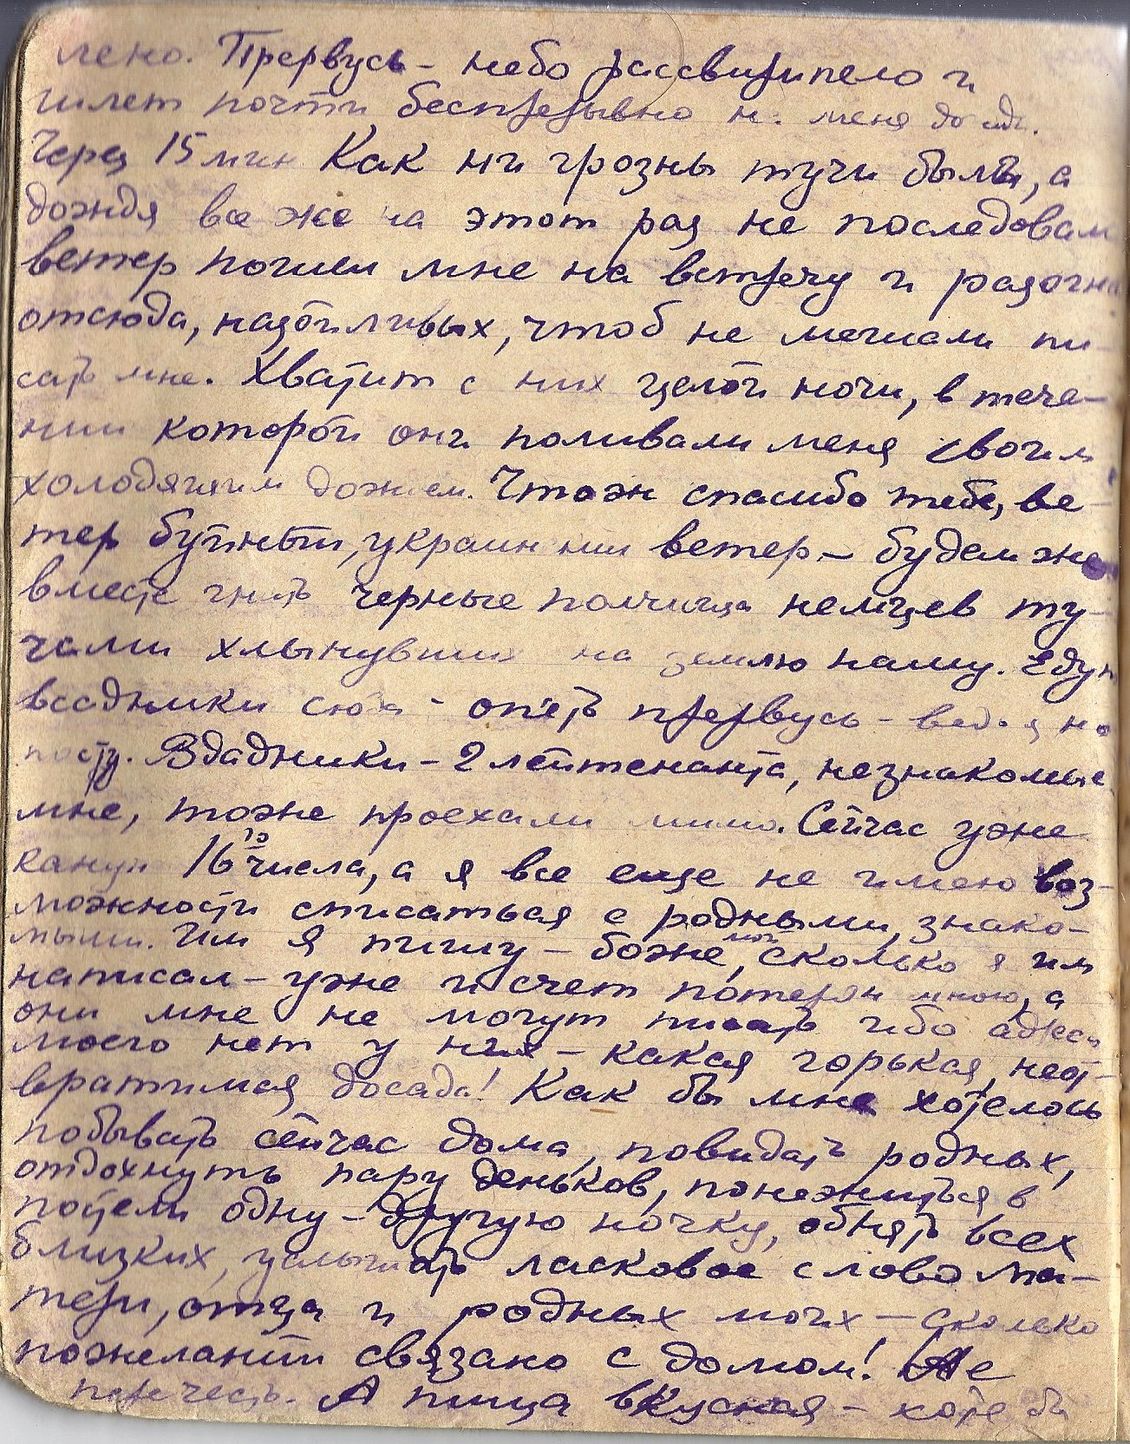 лено. Прервусь – небо рассвирипело и
шлет почти беспрерывно на меня дождь.
Через 15 мин Как ни грозны тучи были, а
дождя все же на этот раз не последовал
ветер пошел мне на встречу и разогна
отсюда, назойливых, чтоб не мешали пи-
сать мне. Хватит с них целой ночи, в тече-
нии которой они поливали меня своим
холодящим дождем. Чтож спасибо тебе, ве-
тер буйный, украинский ветер – будем же
вместе гнать черные полчища немцев ту-
чами хлынувших на землю нашу. Едут
всадники сюда – опять прервусь – ведь я на
посту. Вдадники – 2 лейтенанта, незнакомые
мне, тоже проехали мимо. Сейчас уже
канун 16го числа, а я все еще не имею воз-
можности списаться с родными, знако-
мыми. Им я пишу – боже мой, сколько я им
написал – уже и счет потерян мною, а
они мне не могут писать ибо адреса
моего нет у них – какая горькая, неот-
вратимая досада! Как бы мне хотелось
побывать сейчас дома, повидать родных,
отдохнуть пару деньков, понежиться в
постели одну – другую ночку, обнять всех
близких, услышать ласковое слово ма-
тери, отца и родных моих – сколько
пожеланий связано с домом! Не
перечесть. А пища вкусная – хотя бы